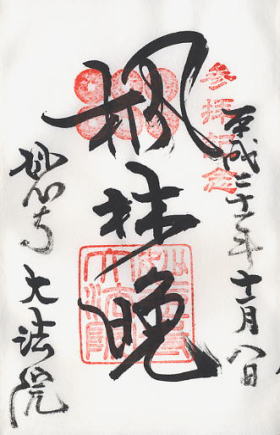 参拝記念
平成二十一年十一月八日
楓林晩
妙心寺 大法院